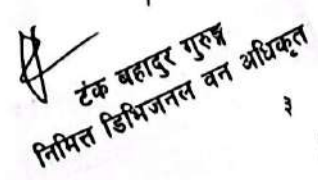 टंक बहादुर गुरुङ्ग
निमित्त डिभिजनल वन अधिकृत
३